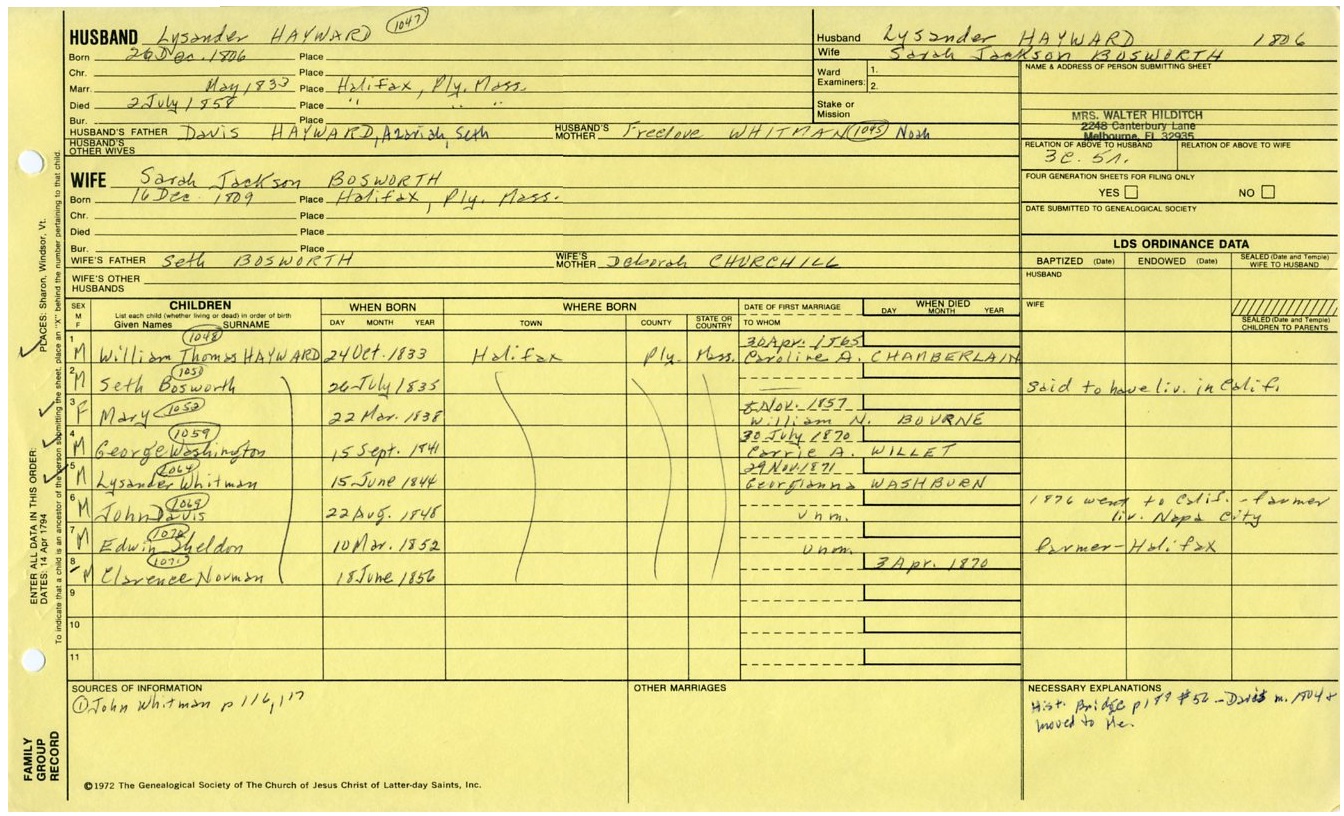 HUSBAND Lysander HAYWARD 1047
Born 26 Dec. 1806 Place
Chr. Place
Marr. May 1833 Place Halifax, Ply. Mass.
Died 2 July 1858 Place " " "
Bur. Place
HUSBAND'S FATHER Davis HAYWARD, Azariah, Seth HUSBAND'S MOTHER Freelove WHITMAN 1045 Noah
HUSBAND'S OTHER WIVES
Husband Lysander HAYWARD 1806
Wife Sarah Jackson BOSWORTH
Ward Examiners: 1.
2.
Stake or Mission
NAME & ADDRESS OF PERSON SUBMITTING SHEET
MRS. WALTER HILDITCH
2248 Canterbury Lane
Melbourne, FL 32935
RELATION OF ABOVE TO HUSBAND RELATION OF ABOVE TO WIFE
3c. 5r.
FOUR GENERATION SHEETS FOR FILING ONLY
YES NO
DATE SUBMITTED TO GENEALOGICAL SOCIETY
WIFE Sarah Jackson BOSWORTH
Born 16 Dec. 1809 Place Halifax, Ply. Mass.
Chr. Place
Died Place
Bur. Place
WIFE'S FATHER Seth BOSWORTH WIFE'S MOTHER Deborah CHURCHILL
WIFE'S OTHER HUSBANDS
LDS ORDINANCE DATA
BAPTIZED (Date) ENDOWED (Date) SEALED (Date and Temple) WIFE TO HUSBAND
HUSBAND
WIFE
SEALED (Date and Temple) CHILDREN TO PARENTS
SEX M F CHILDREN WHEN BORN WHERE BORN DATE OF FIRST MARRIAGE WHEN DIED
List each child (whether living or dead) in order of birth
Given Names SURNAME DAY MONTH YEAR TOWN COUNTY STATE OR COUNTRY TO WHOM DAY MONTH YEAR
1048 30 Apr. 1865
1 M William Thomas HAYWARD 24 Oct. 1833 Halifax Ply. Mass. Caroline A. CHAMBERLAIN
2 M Seth Bosworth 26 July 1835 Said to have liv. in Calif.
Nov. 1857
3 F Mary 1052 22 Mar. 1838 William N. BOURNE
1059 30 July 1870
4 M George Washington 15 Sept. 1841 Carrie A. WILLET
1064 29 Nov. 1871
5 M Lysander Whitman 15 June 1844 Georgianna WASHBURN
1069 1876 went to Calif. - farmer
6 M John Davis 22 Aug. 1848 Unm. liv. Napa City
7 M Edwin Sheldon 10 Mar. 1852 Unm. farmer - Halifax
1071 3 Apr. 1870
8 M Clarence Norman 18 June 1856
9
10
11
SOURCES OF INFORMATION
① John Whitman p 116, 117
OTHER MARRIAGES
NECESSARY EXPLANATIONS
Hist. Bridge p 189 #56 - Davis m. 1804 &
moved to Me.
©1972 The Genealogical Society of The Church of Jesus Christ of Latter-day Saints, Inc.
FAMILY GROUP RECORD
ENTER ALL DATA IN THIS ORDER:
DATES: 14 Apr 1794
PLACES: Sharon, Windsor, Vt.
To indicate that a child is an ancestor of the person submitting the sheet, place an "X" behind the number pertaining to that child.